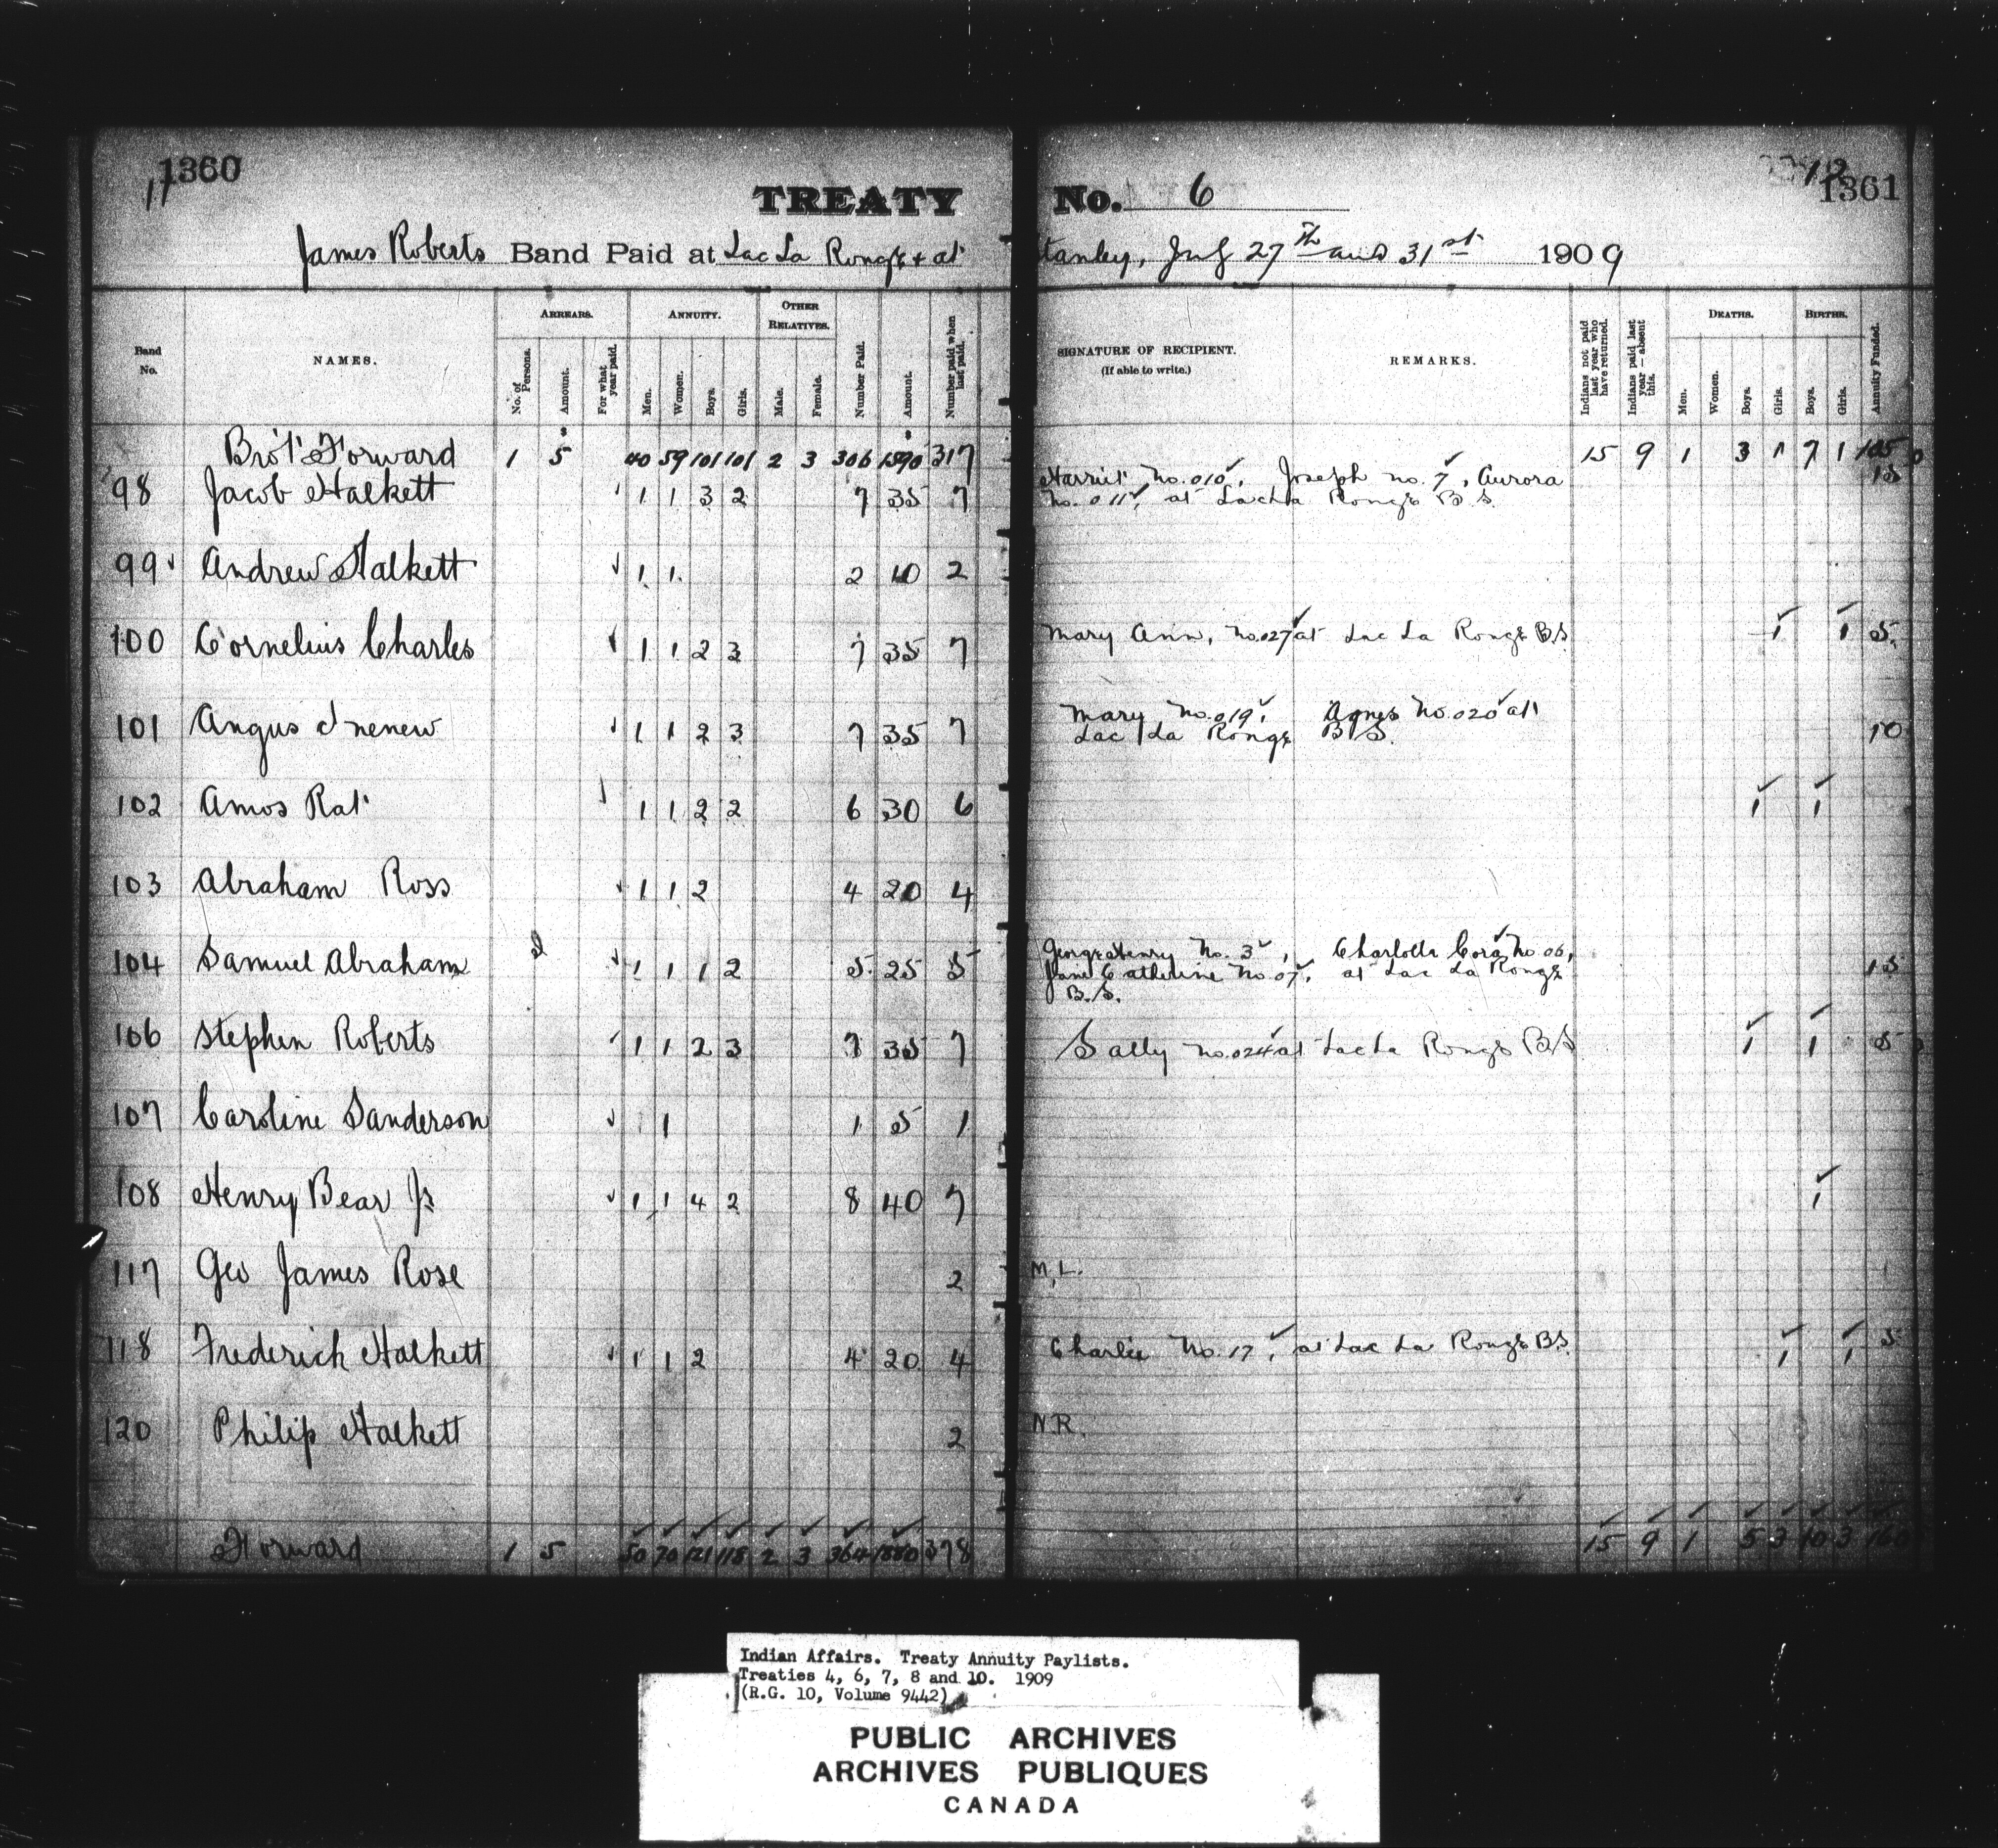 1360
11
TREATY No. 6
12
1361
James Roberts Band Paid at Lac La Ronge & at Stanley, July 27th and 31st 1909
Band No.
NAMES.
ARREARS.
No. of Persons.
Amount.
For what year paid.
ANNUITY.
Men.
Women.
Boys.
Girls.
OTHER RELATIVES.
Male.
Female.
Number Paid.
Amount.
Number paid when last paid.
SIGNATURE OF RECIPIENT.
(If able to write.)
REMARKS.
Indians not paid last year who have returned.
Indians paid last year — absent this.
DEATHS.
Men.
Women.
Boys.
Girls.
BIRTHS.
Boys.
Girls.
Annuity Funded.
Bro't Forward 1 5 40 59 101 101 2 3 306 1590 317 15 9 1 3 1 7 1 105
98 Jacob Halkett 1 1 3 2 7 35 7 Harriet No. 010, Joseph no. 7, Aurora 15
No. 011, at Lac La Ronge B.S.
99 Andrew Halkett 1 1 2 10 2
100 Cornelius Charles 1 1 2 3 7 35 7 Mary Ann, No. 027 at Lac La Ronge B.S. 1 1 5
101 Angus Inenew 1 1 2 3 7 35 7 Mary No. 019, Agnes No. 020 at
Lac La Ronge B.S. 10
102 Amos Rat 1 1 2 2 6 30 6 1 1
103 Abraham Ross 1 1 2 4 20 4
104 Samuel Abraham 1 1 1 2 5 25 5 George Henry No. 3, Charlotte Cora No. 06,
Jane Catherine No. 07, at Lac La Ronge 15
B.S.
106 Stephen Roberts 1 1 2 3 7 35 7 Sally No. 024 at Lac La Ronge B.S 1 1 5
107 Caroline Sanderson 1 1 5 1
108 Henry Bear Jr 1 1 4 2 8 40 7 1
117 Geo James Rose 2 M.L.
118 Frederick Halkett 1 1 2 4 20 4 Charlie No. 17, at Lac La Ronge B.S. 1 1 5
120 Philip Halkett 2 N.R.
Forward 1 5 50 70 121 118 2 3 364 1880 378 15 9 1 5 3 10 3 160
Indian Affairs. Treaty Annuity Paylists.
Treaties 4, 6, 7, 8 and 10. 1909
(R.G. 10, Volume 9442)
PUBLIC ARCHIVES
ARCHIVES PUBLIQUES
CANADA